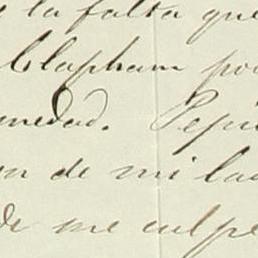 y la falta que
Clapham po
medad. Pepi
n de mi la
de me culpe